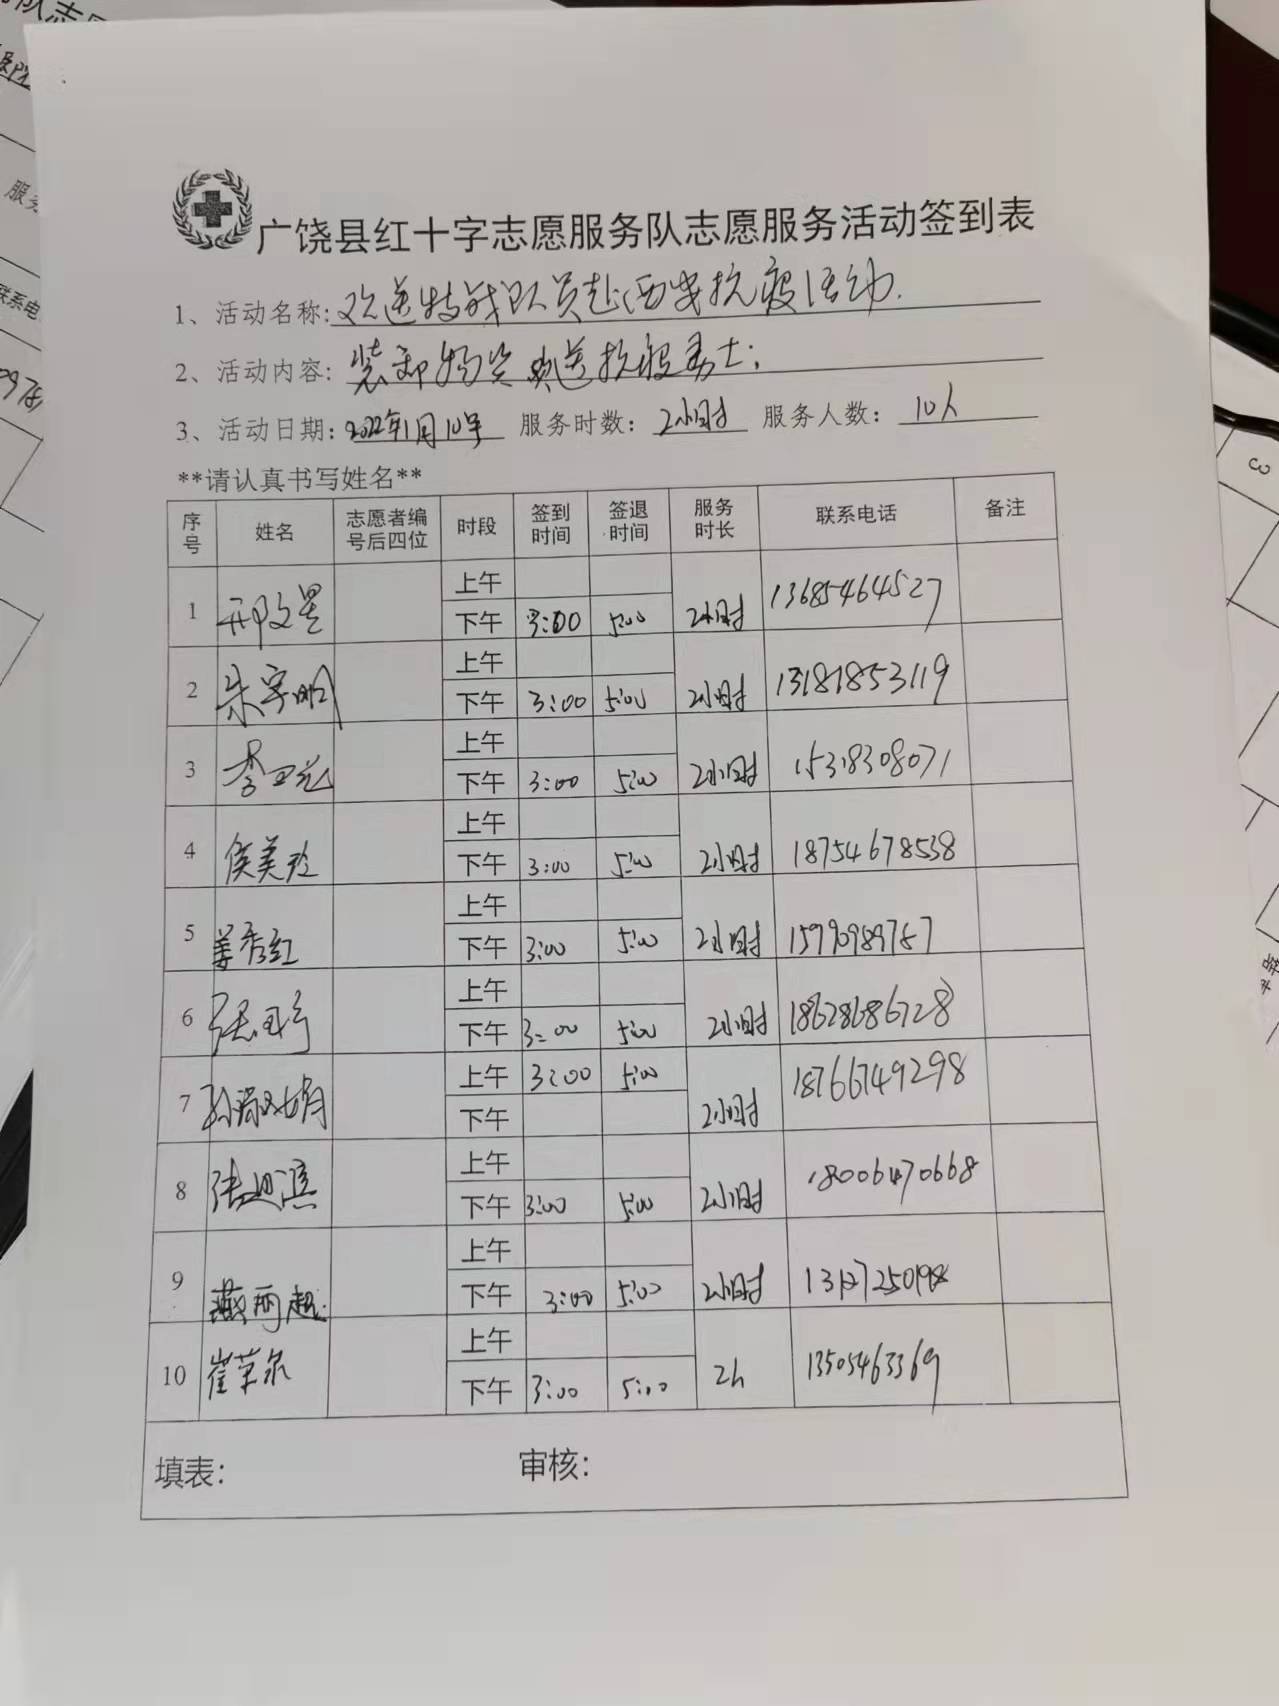 广饶县红十字志愿服务队志愿服务活动签到表
1、活动名称：欢送特战队员赴西安抗疫活动.
2、活动内容：装卸物资 欢送抗疫勇士；
3、活动日期：2022年1月10号 服务时数：2小时 服务人数：10人
**请认真书写姓名**
序号 姓名 志愿者编号后四位 时段 签到时间 签退时间 服务时长 联系电话 备注
1 邢文星 上午
下午 3:00 5:00 2小时 13685464527
2 朱宇明 上午
下午 3:00 5:00 2小时 13181853119
3 李卫兰 上午
下午 3:00 5:00 2小时 15318308071
4 侯美玲 上午
下午 3:00 5:00 2小时 18754678538
5 姜秀红 上午
下午 3:00 5:00 2小时
6 上午
下午 3:00 5:00 2小时 18628686728
7 上午 3:00 5:00 18766749298
下午 2小时
8 上午
下午 3:00 5:00 2小时 18006470668
9 燕丽超 上午
下午 3:00 5:00 2小时
10 上午
下午 3:00 5:00 2h 13505463369
填表： 审核：